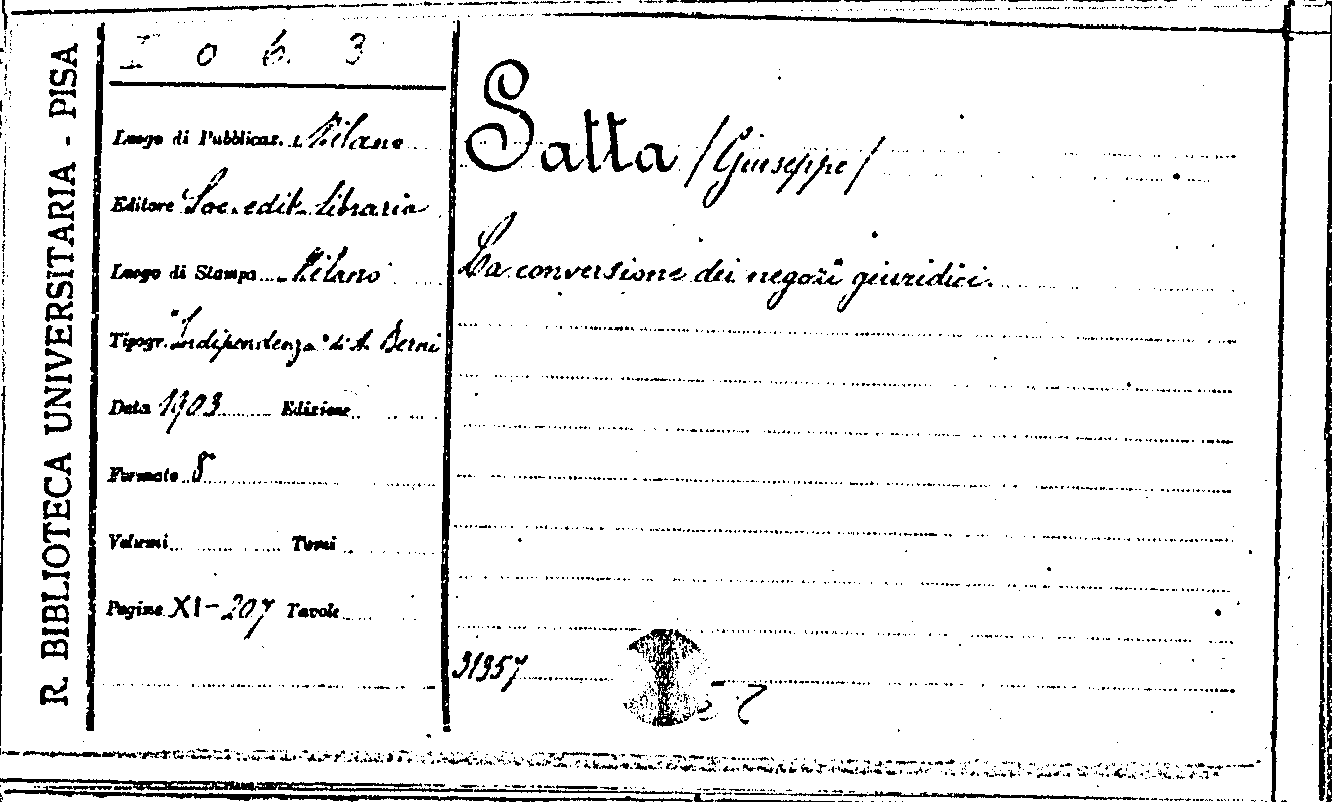 R. BIBLIOTECA UNIVERSITARIA - PISA
I o 6. 3
Luogo di Pubblicaz. Milano
Editore Soc. edit. libraria
Luogo di Stampa Milano
Tipogr. "Indipendenza" di A. Berni
Data 1903 Edizione
Formato 8°
Volumi Tomi
Pagine XI-207 Tavole
Satta /Giuseppe/
La conversione dei negozi giuridici.
31357